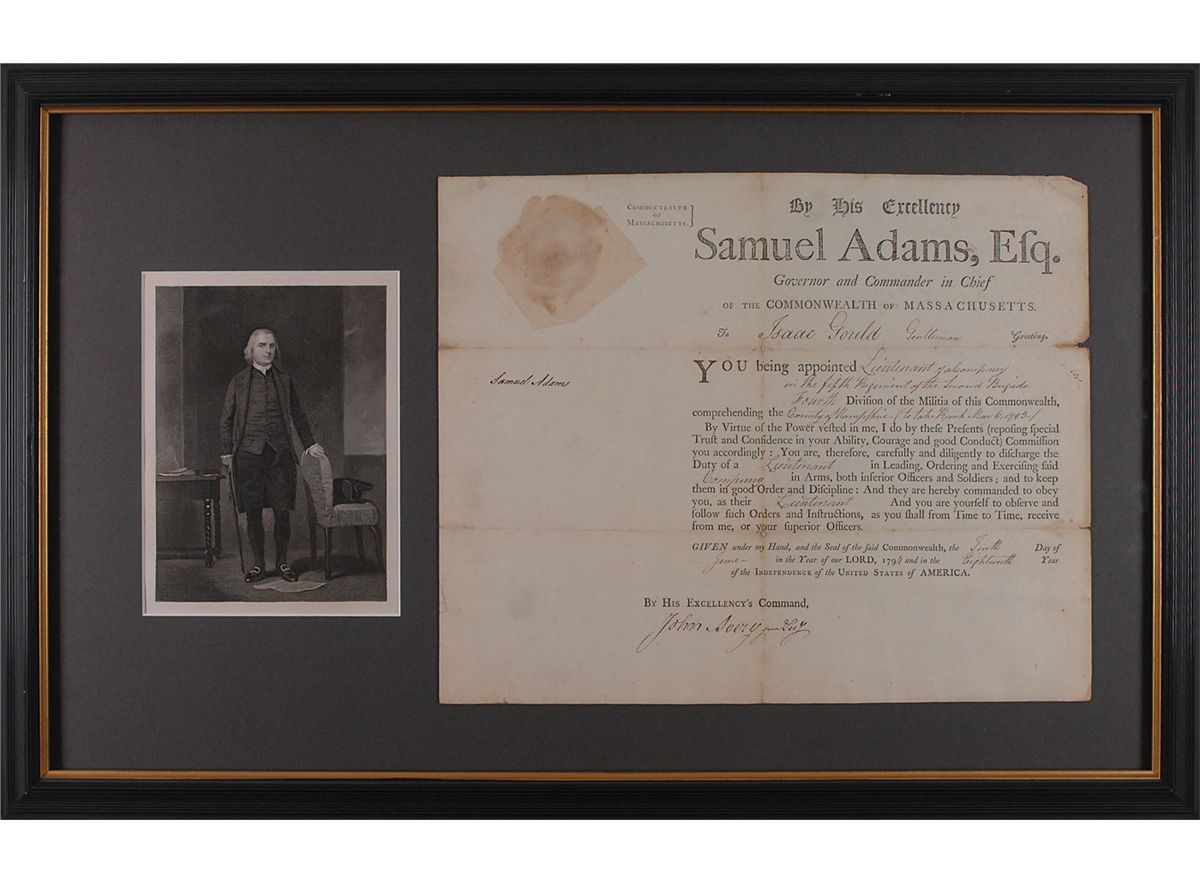 COMMONWEALTH
OF
MASSACHUSETTS.}
By His Excellency
Samuel Adams, Eſq.
Governor and Commander in Chief
OF THE COMMONWEALTH OF MASSACHUSETTS.
To Isaac Gould Gentleman Greeting.
Samuel Adams
YOU being appointed Lieutenant of a Company
in the fifth Regiment of the Second Brigade
Fourth Division of the Militia of this Commonwealth,
comprehending the County of Hampshire - (to take Rank May 6. 1793.)
By Virtue of the Power veſted in me, I do by theſe Preſents (repoſing ſpecial
Truſt and Confidence in your Ability, Courage and good Conduct) Commiſſion
you accordingly: You are, therefore, carefully and diligently to diſcharge the
Duty of a Lieutenant in Leading, Ordering and Exerciſing ſaid
Company in Arms, both inferior Officers and Soldiers; and to keep
them in good Order and Diſcipline: And they are hereby commanded to obey
you, as their Lieutenant And you are yourſelf to obſerve and
follow ſuch Orders and Inſtructions, as you ſhall from Time to Time, receive
from me, or your ſuperior Officers.
GIVEN under my Hand, and the Seal of the ſaid Commonwealth, the Day of
June - in the Year of our LORD, 1794 and in the Eighteenth Year
of the INDEPENDENCE of the UNITED STATES of AMERICA.
BY HIS EXCELLENCY'S Command,
John Avery jun Secy